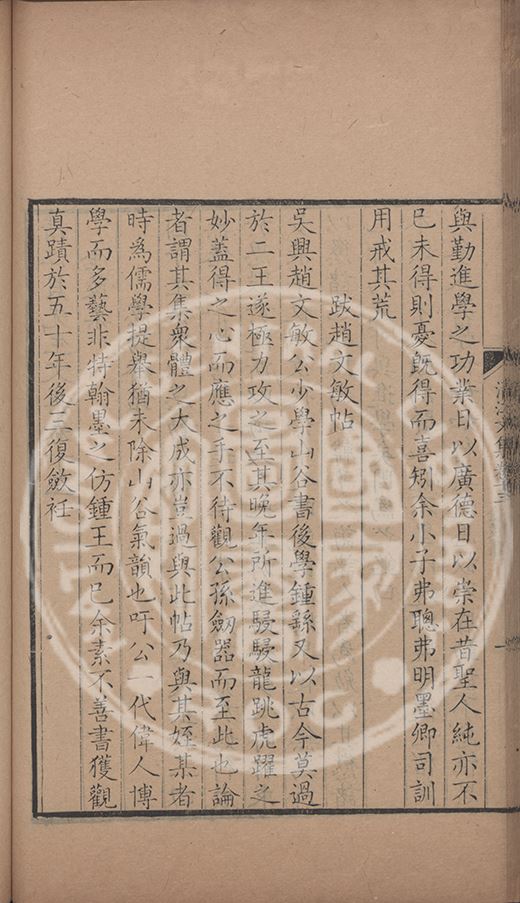 與勤進學之功業日以廣德日以崇在昔聖人純亦不
已未得則憂旣得而喜矧余小子弗聰弗明墨卿司訓
用戒其荒
跋趙文敏帖
吳興趙文敏公少學山谷書後學鍾繇又以古今莫過
於二王遂極力攻之至其晚年所進駸駸龍跳虎躍之
妙蓋得之心而應之手不待觀公孫劒器而至此也論
者謂其集衆體之大成亦豈過與此帖乃與其姪某者
時為儒學提舉猶未除山谷氣韻也吁公一代偉人博
學而多藝非特翰墨之仿鍾王而已余素不善書獲觀
真蹟於五十年後三復斂衽